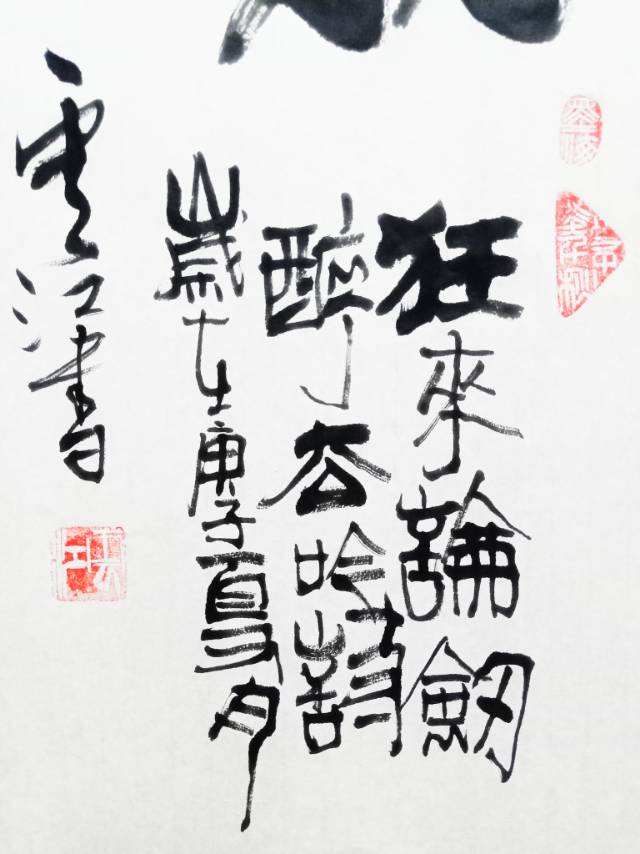 狂來論劍
醉去吟詩
歲在庚子夏月
雲江書